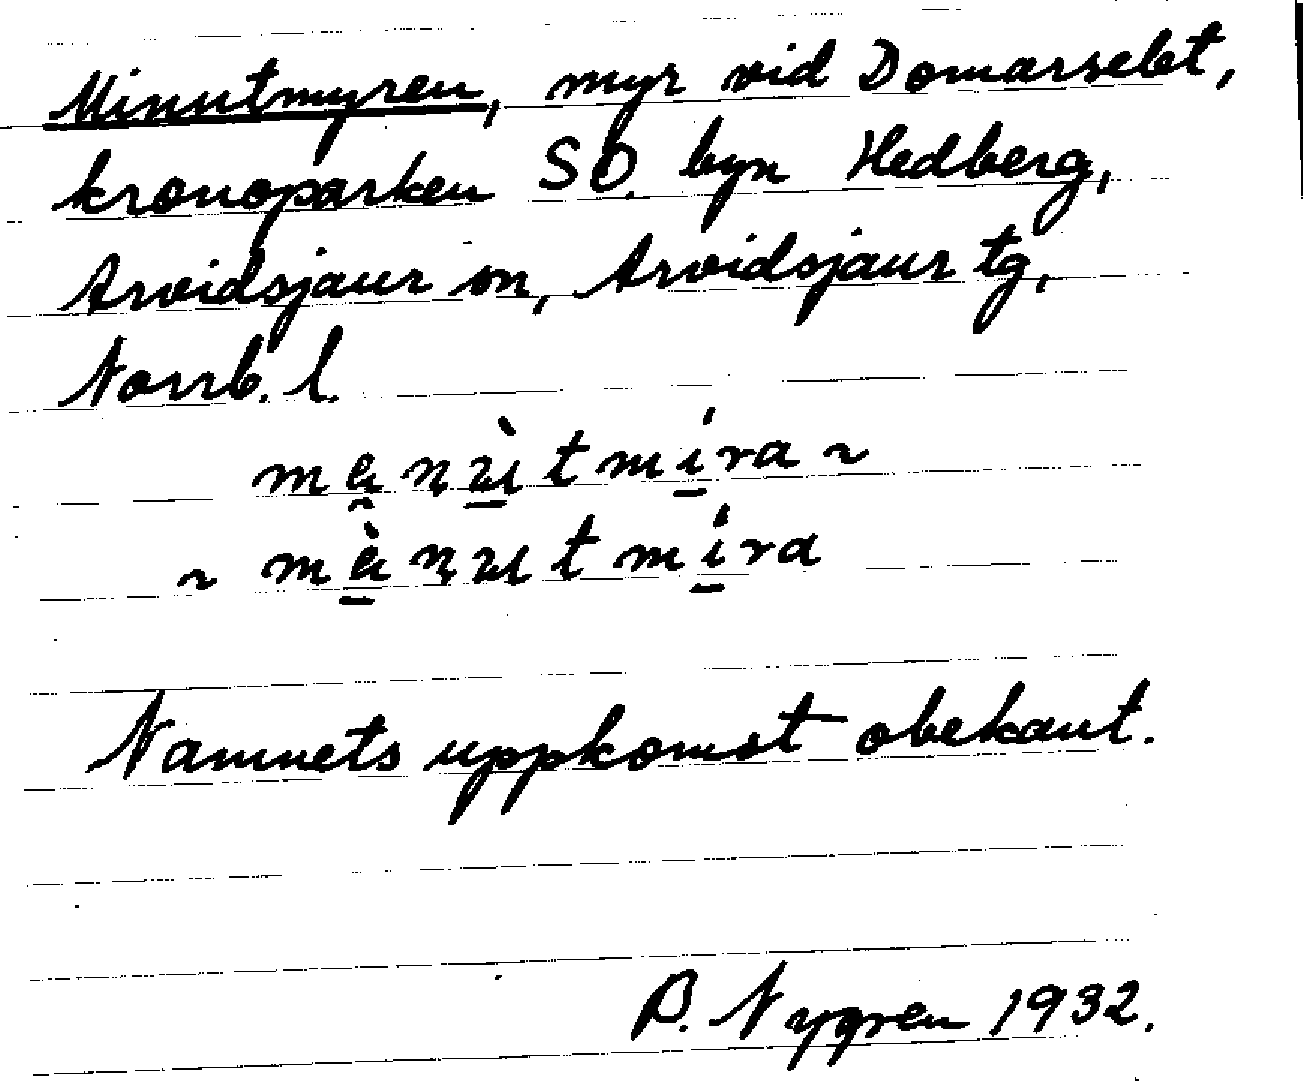 Minutmyren, myr vid Domarselet,
kronoparken SO. byn Hedberg,
Arvidsjaur sn, Arvidsjaur tg,
Norrb. l.
Namnets uppkomst obekant.
B. Nygren 1932.